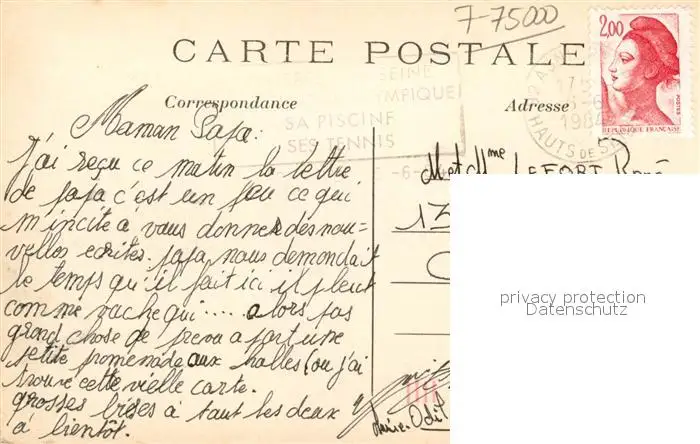 7-75000
2,00
CARTE POSTALE
SEINE
SA PISCINE
SES TENNIS
17
1984
HAUTS DE S
POSTES
REPUBLIQUE FRANÇAISE
Correspondance
Adresse
Maman Papa.
J'ai reçu ce matin la lettre
de papa c'est un peu ce qui
m'incite à vous donner des nou=
velles ecrites. papa nous demandait
le temps qu'il fait ici il pleut
comme vache qui .... alors pas
grand chose de prevu a part une
petite promenade aux halles (ou j'ai
trouvé cette vielle carte.
grosses bises à tout les deux
à bientôt.
M et Mme LEFORT René
13
privacy protection
Datenschutz